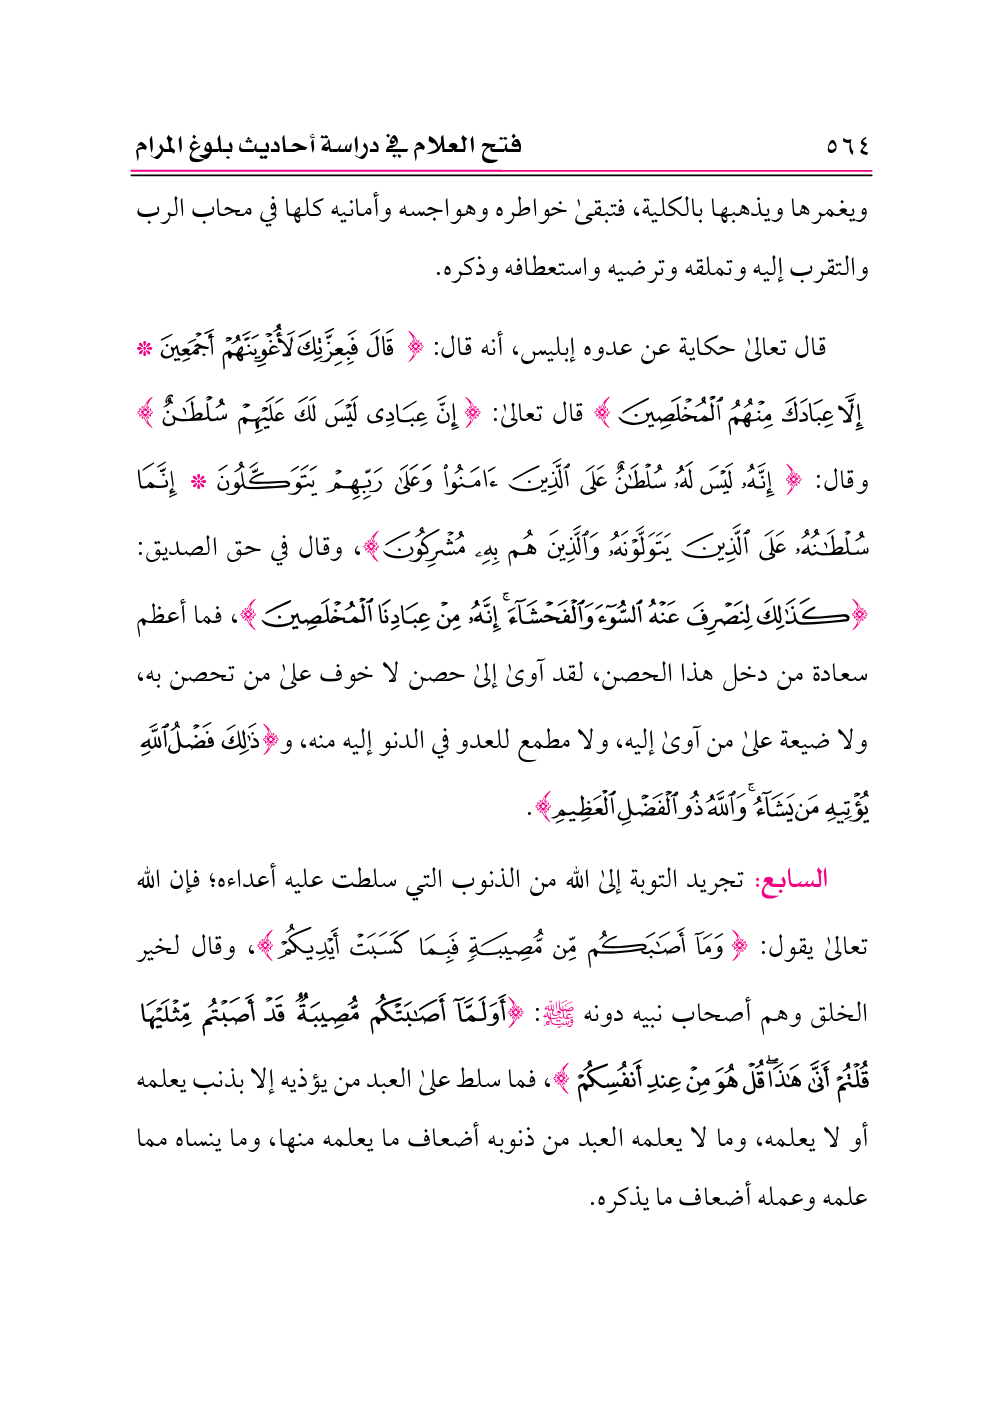 ٥٦٤ فتح العلام في دراسة أحاديث بلوغ المرام
ويغمرها ويذهبها بالكلية، فتبقىٰ خواطره وهواجسه وأمانيه كلها في محاب الرب
والتقرب إليه وتملقه وترضيه واستعطافه وذكره.
قال تعالىٰ حكاية عن عدوه إبليس، أنه قال: ﴿ قَالَ فَبِعِزَّتِكَ لَأُغْوِيَنَّهُمْ أَجْمَعِينَ *
إِلَّا عِبَادَكَ مِنْهُمُ ٱلْمُخْلَصِينَ ﴾ قال تعالىٰ: ﴿ إِنَّ عِبَادِى لَيْسَ لَكَ عَلَيْهِمْ سُلْطَـٰنٌ ﴾
وقال: ﴿ إِنَّهُۥ لَيْسَ لَهُۥ سُلْطَـٰنٌ عَلَى ٱلَّذِينَ ءَامَنُوا۟ وَعَلَىٰ رَبِّهِمْ يَتَوَكَّلُونَ * إِنَّمَا
سُلْطَـٰنُهُۥ عَلَى ٱلَّذِينَ يَتَوَلَّوْنَهُۥ وَٱلَّذِينَ هُم بِهِۦ مُشْرِكُونَ﴾، وقال في حق الصديق:
﴿كَذَٰلِكَ لِنَصْرِفَ عَنْهُ ٱلسُّوٓءَ وَٱلْفَحْشَآءَ ۚ إِنَّهُۥ مِنْ عِبَادِنَا ٱلْمُخْلَصِينَ ﴾، فما أعظم
سعادة من دخل هذا الحصن، لقد آوىٰ إلىٰ حصن لا خوف علىٰ من تحصن به،
ولا ضيعة علىٰ من آوىٰ إليه، ولا مطمع للعدو في الدنو إليه منه، و﴿ذَٰلِكَ فَضْلُ ٱللَّهِ
يُؤْتِيهِ مَن يَشَآءُ ۚ وَٱللَّهُ ذُو ٱلْفَضْلِ ٱلْعَظِيمِ﴾.
السابع: تجريد التوبة إلىٰ الله من الذنوب التي سلطت عليه أعداءه؛ فإن الله
تعالىٰ يقول: ﴿ وَمَآ أَصَـٰبَكُم مِّن مُّصِيبَةٍ فَبِمَا كَسَبَتْ أَيْدِيكُمْ﴾، وقال لخير
الخلق وهم أصحاب نبيه دونه ﷺ: ﴿أَوَلَمَّآ أَصَـٰبَتْكُم مُّصِيبَةٌ قَدْ أَصَبْتُم مِّثْلَيْهَا
قُلْتُمْ أَنَّىٰ هَـٰذَا ۖ قُلْ هُوَ مِنْ عِندِ أَنفُسِكُمْ ﴾، فما سلط علىٰ العبد من يؤذيه إلا بذنب يعلمه
أو لا يعلمه، وما لا يعلمه العبد من ذنوبه أضعاف ما يعلمه منها، وما ينساه مما
علمه وعمله أضعاف ما يذكره.